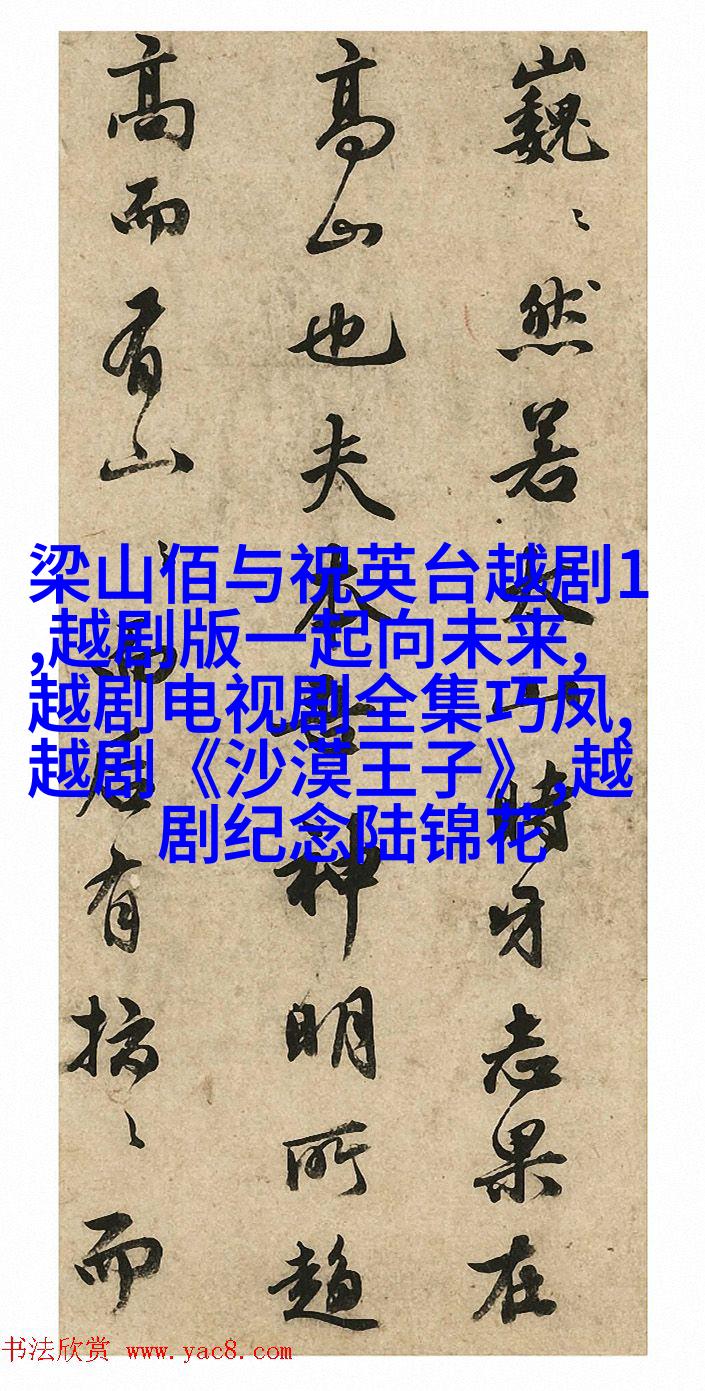 巍〻然若太山時牙志果在
高山也夫本無神明所趨
高而有山〻而后有〻而
梁山佰与祝英台越剧1
,越剧版一起向未来,
越剧电视剧全集巧凤,
越剧《沙漠王子》,越
剧纪念陆锦花
书法欣赏 www.yac8.com